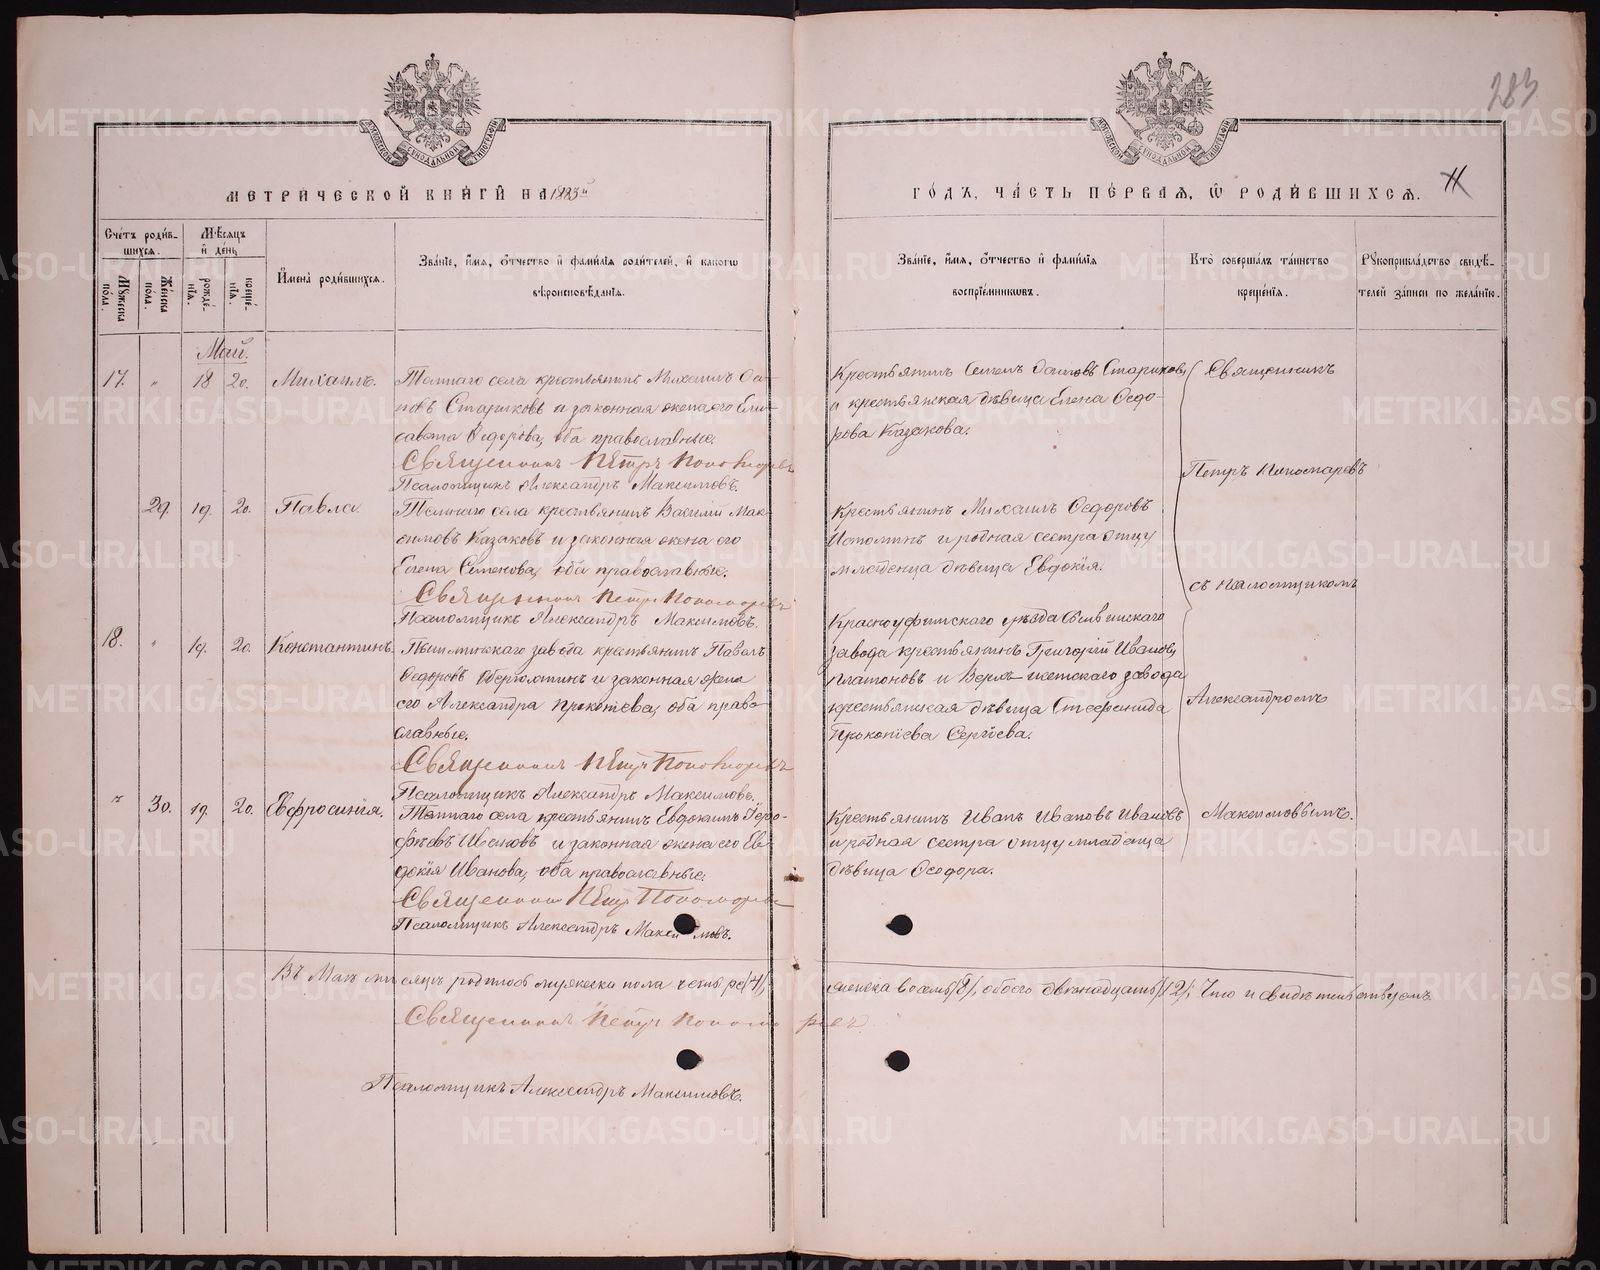 283
МОСКОВСКОЙ СѴНОДАЛЬНОЙ ТИПОГРАФІИ
МОСКОВСКОЙ СѴНОДАЛЬНОЙ ТИПОГРАФІИ
МЕТРИЧЕСКОЙ КНИГИ НА 1883й
ГОДЪ, ЧАСТЬ ПЕРВАЯ, Ѡ РОДИВШИХСЯ.
11
Счетъ родив-
шихся.
Мужеска пола.
Женска пола.
Мѣсяцъ и день
рожде-
нія.
креще-
нія.
Имена родившихся.
Званіе, имя, отчество и фамилія родителей, и какого
вѣроисповѣданія.
Званіе, имя, отчество и фамилія
воспріемниковъ.
Кто совершалъ таинство
крещенія.
Рукоприкладство свидѣ-
телей записи по желанію.
Май.
17. " 18 20. Михаилъ.
Темнаго села крестьянинъ Михаилъ Оси-
повъ Стариковъ и законная жена его Ели-
савета Ѳедорова, оба православные.
Священникъ Петръ Пономаревъ
Псаломщикъ Александръ Максимовъ.
Крестьянинъ Семенъ Осиповъ Стариковъ
и крестьянская дѣвица Елена Ѳедо-
рова Казакова.
29. 19. 20. Павла.
села крестьянинъ Василій Мак-
симовъ Казаковъ и законная жена его
Елена Семенова, оба православные.
Священникъ Петръ Пономаревъ
Псаломщикъ Александръ Максимовъ.
Крестьянинъ Михаилъ Ѳедоровъ
Истоминъ и родная сестра отцу
младенца дѣвица Евдокія.
18. " 19. 20. Константинъ.
завода крестьянинъ Павелъ
Ѳедоровъ и законная жена
его Александра Прокопіева, оба право-
славные.
Священникъ Петръ Пономаревъ
Псаломщикъ Александръ Максимовъ.
Красноуфимскаго уѣзда
завода крестьянинъ Григорій Ивановъ
Платоновъ и Верхъ-Исетскаго завода
крестьянская дѣвица Стефанида
Прокопіева Сергѣева.
" 30. 19. 20. Евфросинія.
села крестьянинъ Евдокимъ Геро-
фѣевъ Ивановъ и законная жена его Ев-
докія Иванова, оба православные.
Священникъ Петръ Пономаревъ
Псаломщикъ Александръ Максимовъ.
Крестьянинъ Иванъ Ивановъ Ивановъ
и родная сестра отцу младенца
дѣвица Ѳеодора.
Священникъ
Петръ Пономаревъ
съ псаломщикомъ
Александромъ
Максимовымъ.
Въ Маѣ мѣсяцѣ родилось мужеска пола четыре /4/, женска восемь /8/, обоего двѣнадцать /12/; Что и свидѣтельствуемъ
Священникъ Петръ Пономаревъ.
Псаломщикъ Александръ Максимовъ.
METRIKI.GASO-URAL.RU